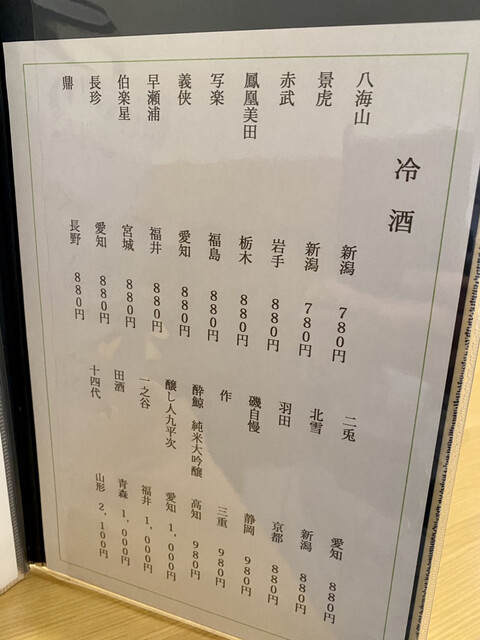 冷酒
八海山 新潟 780円
景虎 新潟 780円
赤武 岩手 880円
鳳凰美田 栃木 880円
写楽 福島 880円
義侠 愛知 880円
早瀬浦 福井 880円
伯楽星 宮城 880円
長珍 愛知 880円
鼎 長野 880円
二兎 愛知 880円
北雪 新潟 880円
羽田 京都 880円
磯自慢 静岡 980円
作 三重 980円
酔鯨 純米大吟醸 高知 980円
醸し人九平次 愛知 1,000円
一之谷 福井 1,000円
田酒 青森 1,000円
十四代 山形 2,100円